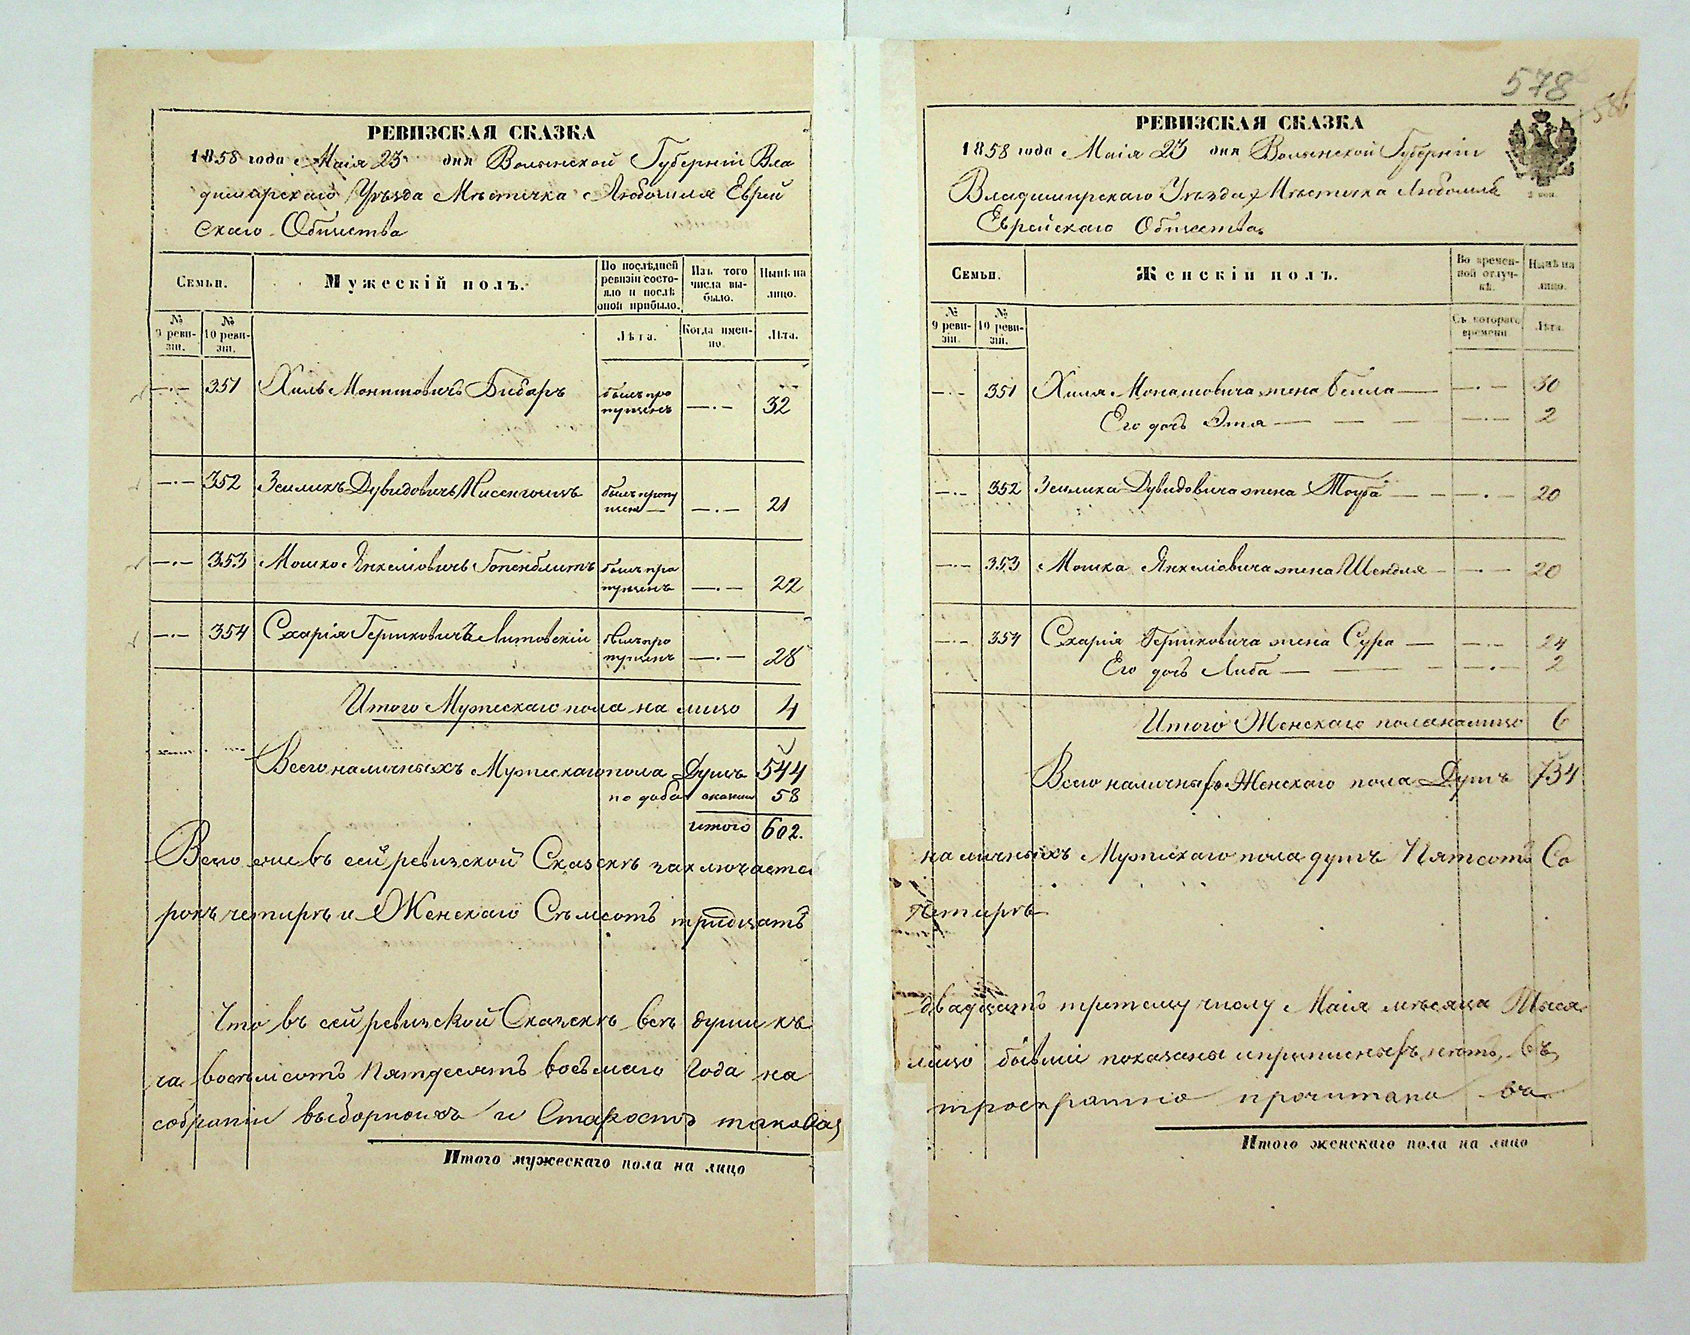 РЕВИЗСКАЯ СКАЗКА
1858 года Маія 23 дня Волынской Губерніи Вла
димірскаго Уѣзда Мѣстечка Любомля Еврей
скаго Общества
Семьи.
Мужескій полъ.
По послѣдней ревизіи состояло и послѣ оной прибыло.
Изъ того числа выбыло.
Нынѣ на лицо.
№ 9 ревизіи.
№ 10 ревизіи.
Лѣта.
Когда именно.
Лѣта.
351 Хиль Моншовичъ Бибаръ былъ пропущенъ —·— 32
352 Зелигъ Дувидовичъ былъ пропущенъ —·— 21
353 Мошко Янкеліовичъ былъ пропущенъ —·— 22
354 Схарія Гершковичъ Литовскій былъ пропущенъ —·— 28
Итого Мужескаго пола на лицо 4
Всего наличныхъ Мужескаго пола Душъ 544
по доба 58
итого 602.
Всего же въ сей ревизской Сказкѣ заключается
рокъ четыре и Женскаго Семьсотъ тридцать
Что въ сей ревизской Сказкѣ всѣ души къ
ча восемьсотъ Пятдесятъ восьмаго Года на
собраніи выборныхъ и Старостъ таковая
Итого мужескаго пола на лицо
578
РЕВИЗСКАЯ СКАЗКА
1858 года Маія 23 дня Волынской Губерніи
Владимирскаго Уѣзда Мѣстечка Любомля
Еврейскаго Общества
Семьи.
Женскій полъ.
Во временной отлучкѣ.
Нынѣ на лицо.
№ 9 ревизіи.
№ 10 ревизіи.
Съ котораго времени
Лѣта.
351 Хиля Моншовича жена Бейла — —·— 30
Его дочь Этя — — — —·— 2
352 Зелика Дувидовича жена Тоуба — — —·— 20
353 Мошка Янкеліовича жена Шендля — —·— 20
354 Схарія Гершковича жена Сура — —·— 24
Его дочь Либа — — — —·— 2
Итого Женскаго пола на лицо 6
Всего наличныхъ Женскаго пола Душъ 734
наличныхъ Мужескаго пола душъ Пятсотъ Со
Четыре
двадцать третему числу Маія мѣсяца Тыся
лицо бывшіе показаны и прописныхъ нѣтъ, въ
троекратно прочитана
Итого женскаго пола на лицо